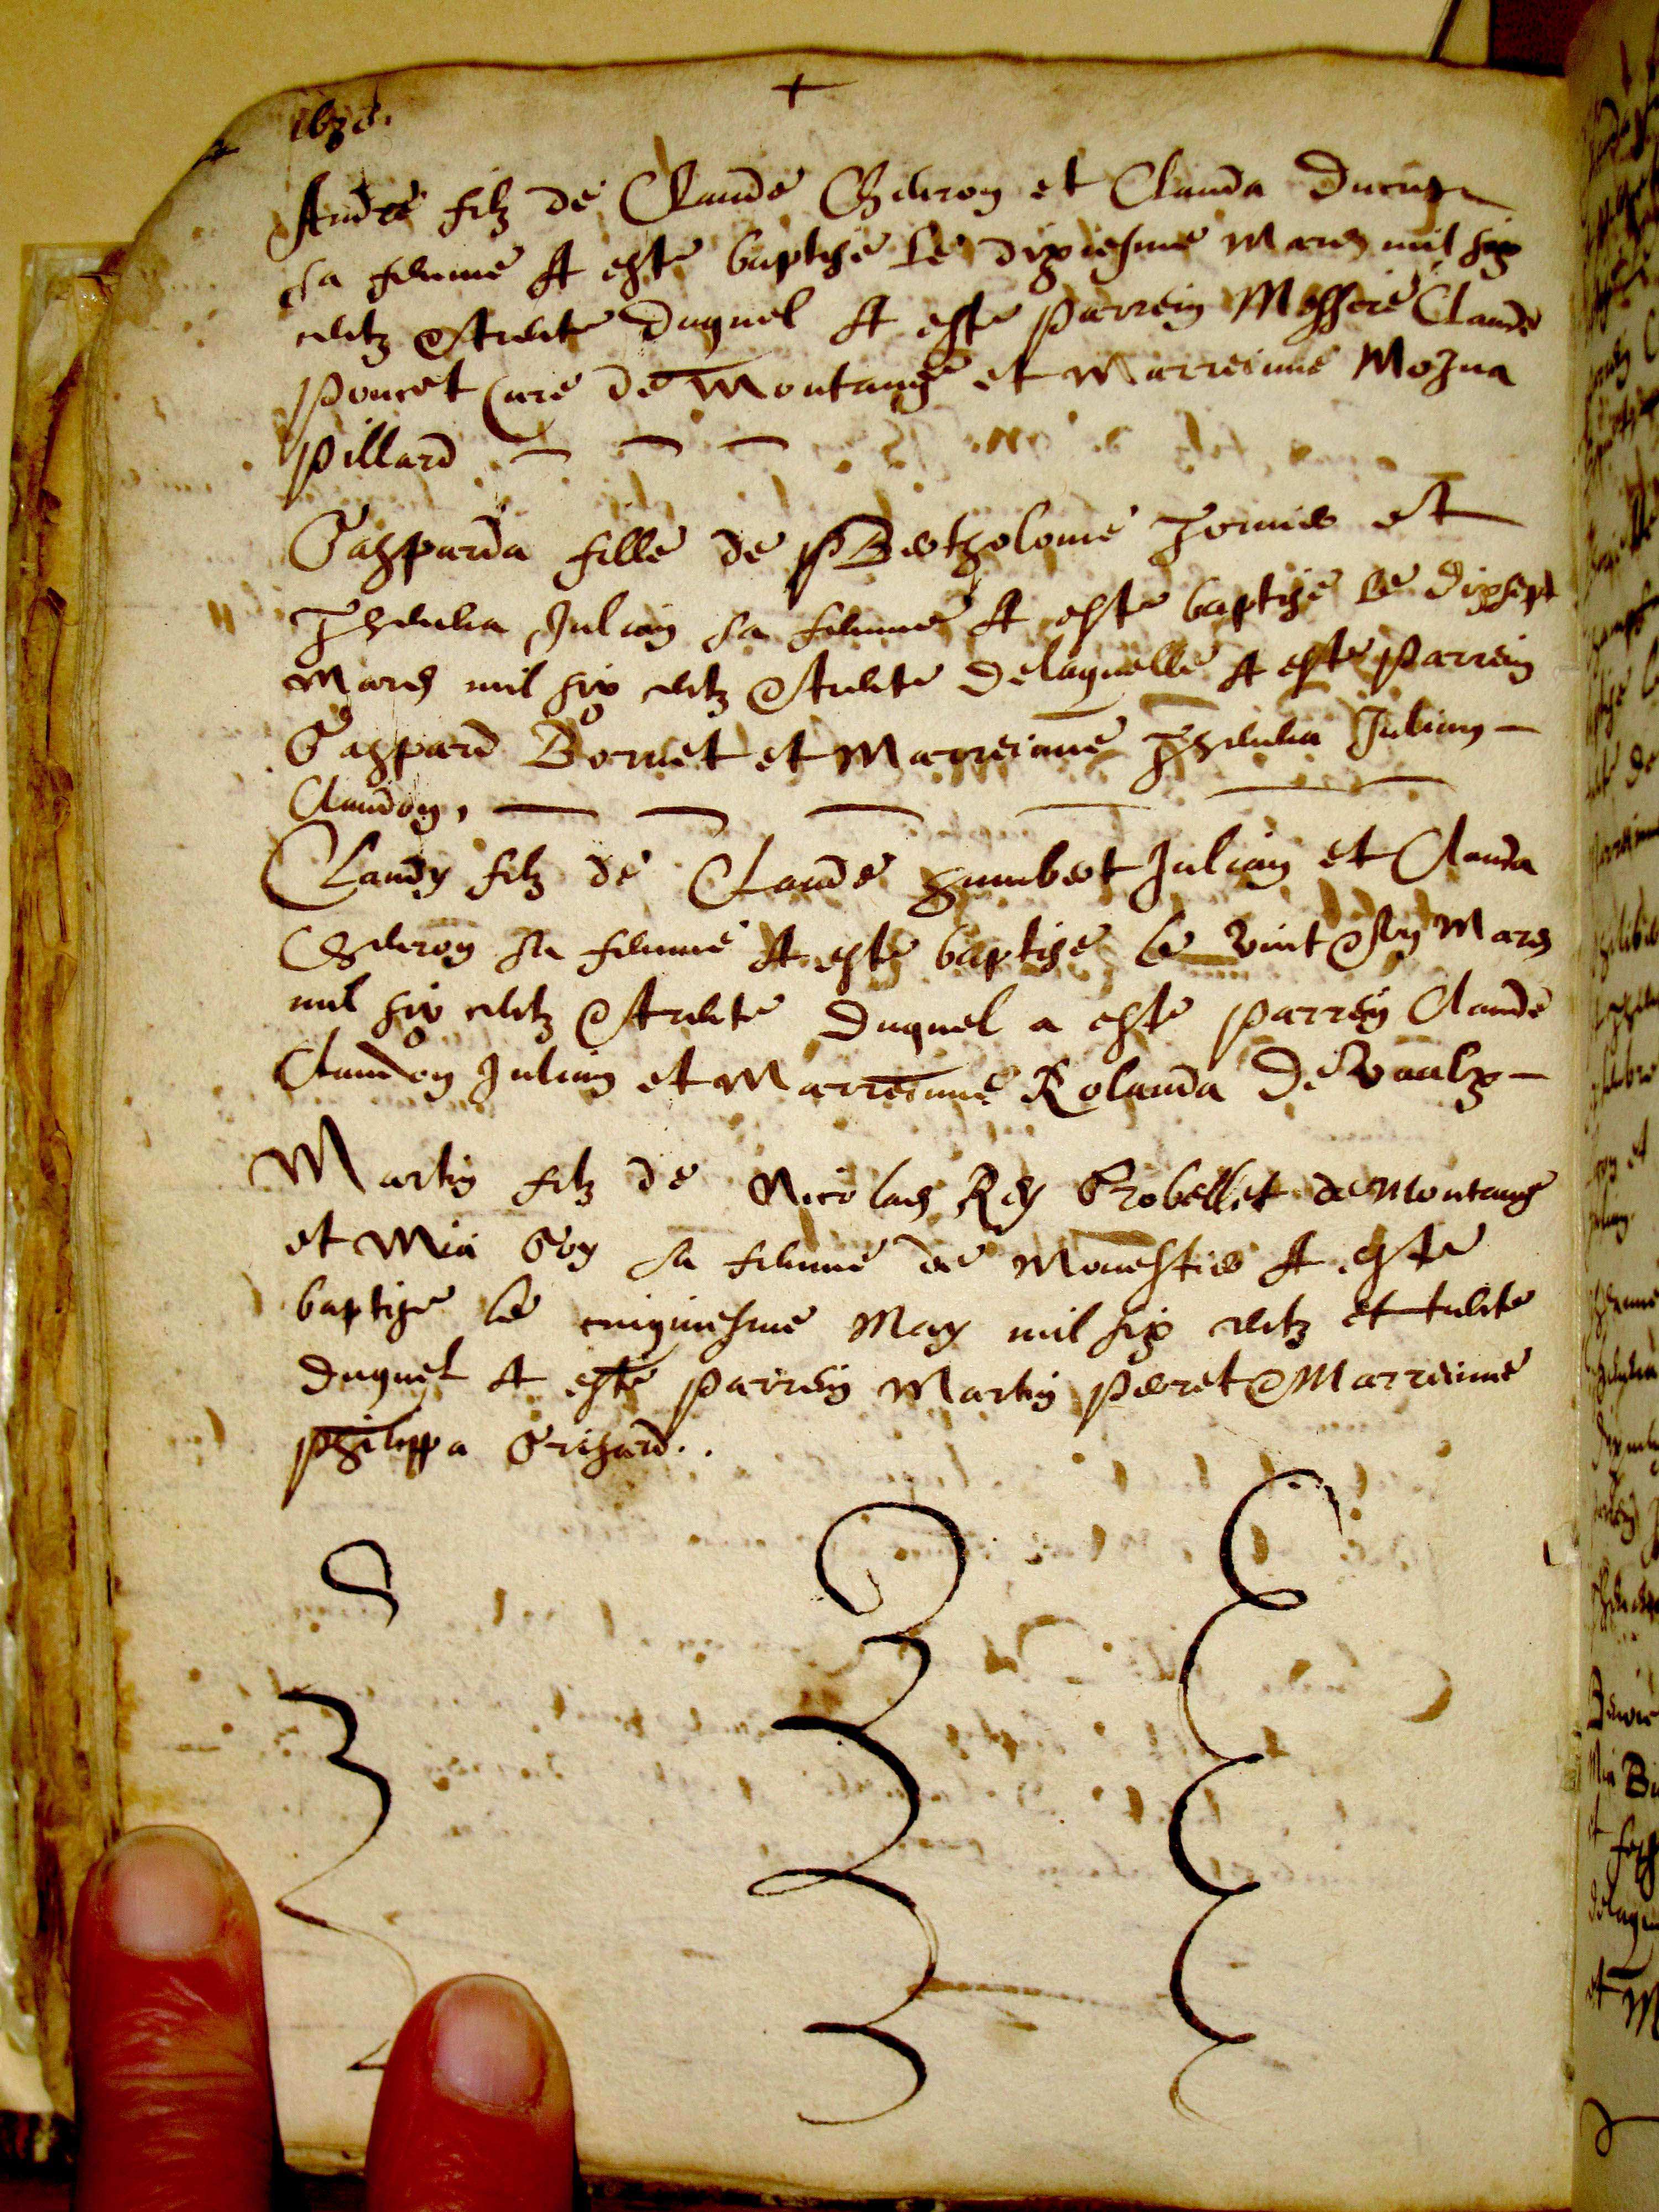 1630.
Andre filz de Claude Gueron et Clauda Ducret
sa femme A este baptise le dixiesme Mars mil six
centz et trente Duquel A este Parrein Messire Claude
Poncet Cure de Montane et Marreinne
Pillard
Gasparda fille de Bertholome et
Julian sa femme A este baptise le dixsept
Mars mil six centz et trente delaquelle A este Parrein
Gaspard Bornet et Marreinne Julian
Claudon,
Claudy filz de Claude Humbert Julian et Clauda
Gueron sa femme A este baptise le vint et un Mars
mil six centz et trente Duquel a este Parrein Claude
Claudon Julian et Marreinne Rolanda De Vaulx
Martin filz de Nicolas Rey Grobellet de Montane
et Mia Goy sa femme de Monestier A este
baptise le cinquiesme May mil six centz et trente
Duquel A este Parrein Martin Perret et Marreinne
Philippa Grisard..